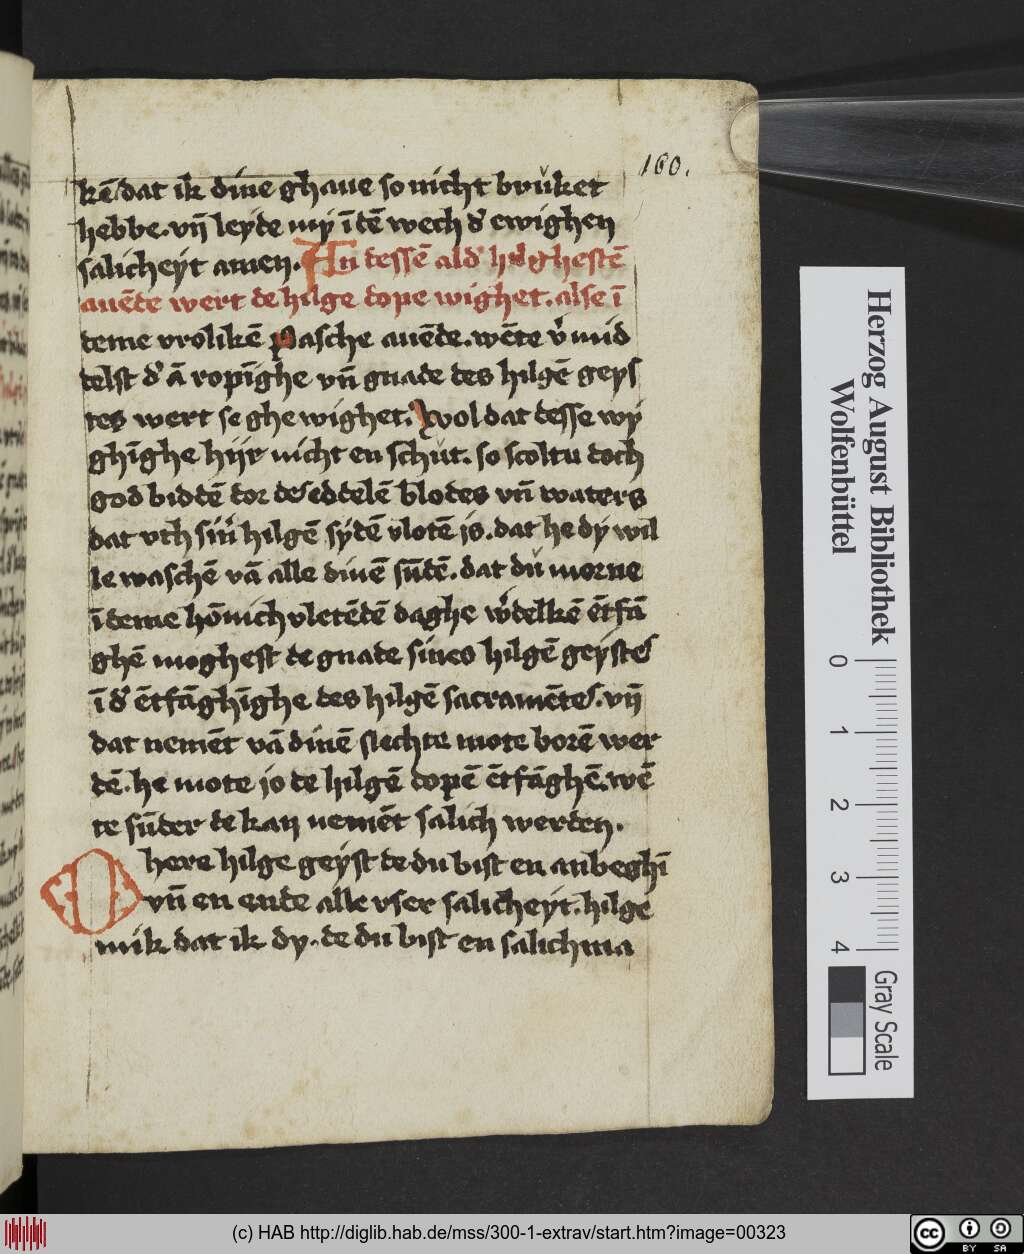 160.
kē dat ik dine ghaue so nicht brůket
hebbe. vn̄ leyde my ī dē wech d' ewighen
salicheyt amen. An dessē ald' hilghestē
auēde wert de hilge dope wighet. alse ī
deme vrolikē pasche auēde. wēte v'mid
delst d' ā ropīghe vn̄ gnade des hilgē geys
tes wert se ghe wighet. Wol dat desse wy
ghīghe hijr nicht en schůt. so scoltu doch
god biddē dor des eddelē blodes vn̄ waters
dat vth sin' hilgē sydē vlotē is. dat he dy wil
le waschē vā alle dinē sūdē. dat dů morne
ī deme hōnich vletēdē daghe w'delkē ētfā
ghē moghest de gnade sines hilgē geystes
ī d' ētfāghīghe des hilgē sacramētes. vn̄
dat nemēt vā dinē slechte mote borē wer
dē. he mote jo de hilgē dopē ētfāghē. wē
te sūder de kan nemēt salich werden.
O here hilge geyst de du bist en anbeghī
vn̄ en ende alle vser salicheyt. hilge
mik dat ik dy. de du bist en salichma
Herzog August Bibliothek
Wolfenbüttel
0 1 2 3 4
Gray Scale
(c) HAB http://diglib.hab.de/mss/300-1-extrav/start.htm?image=00323
cc BY SA